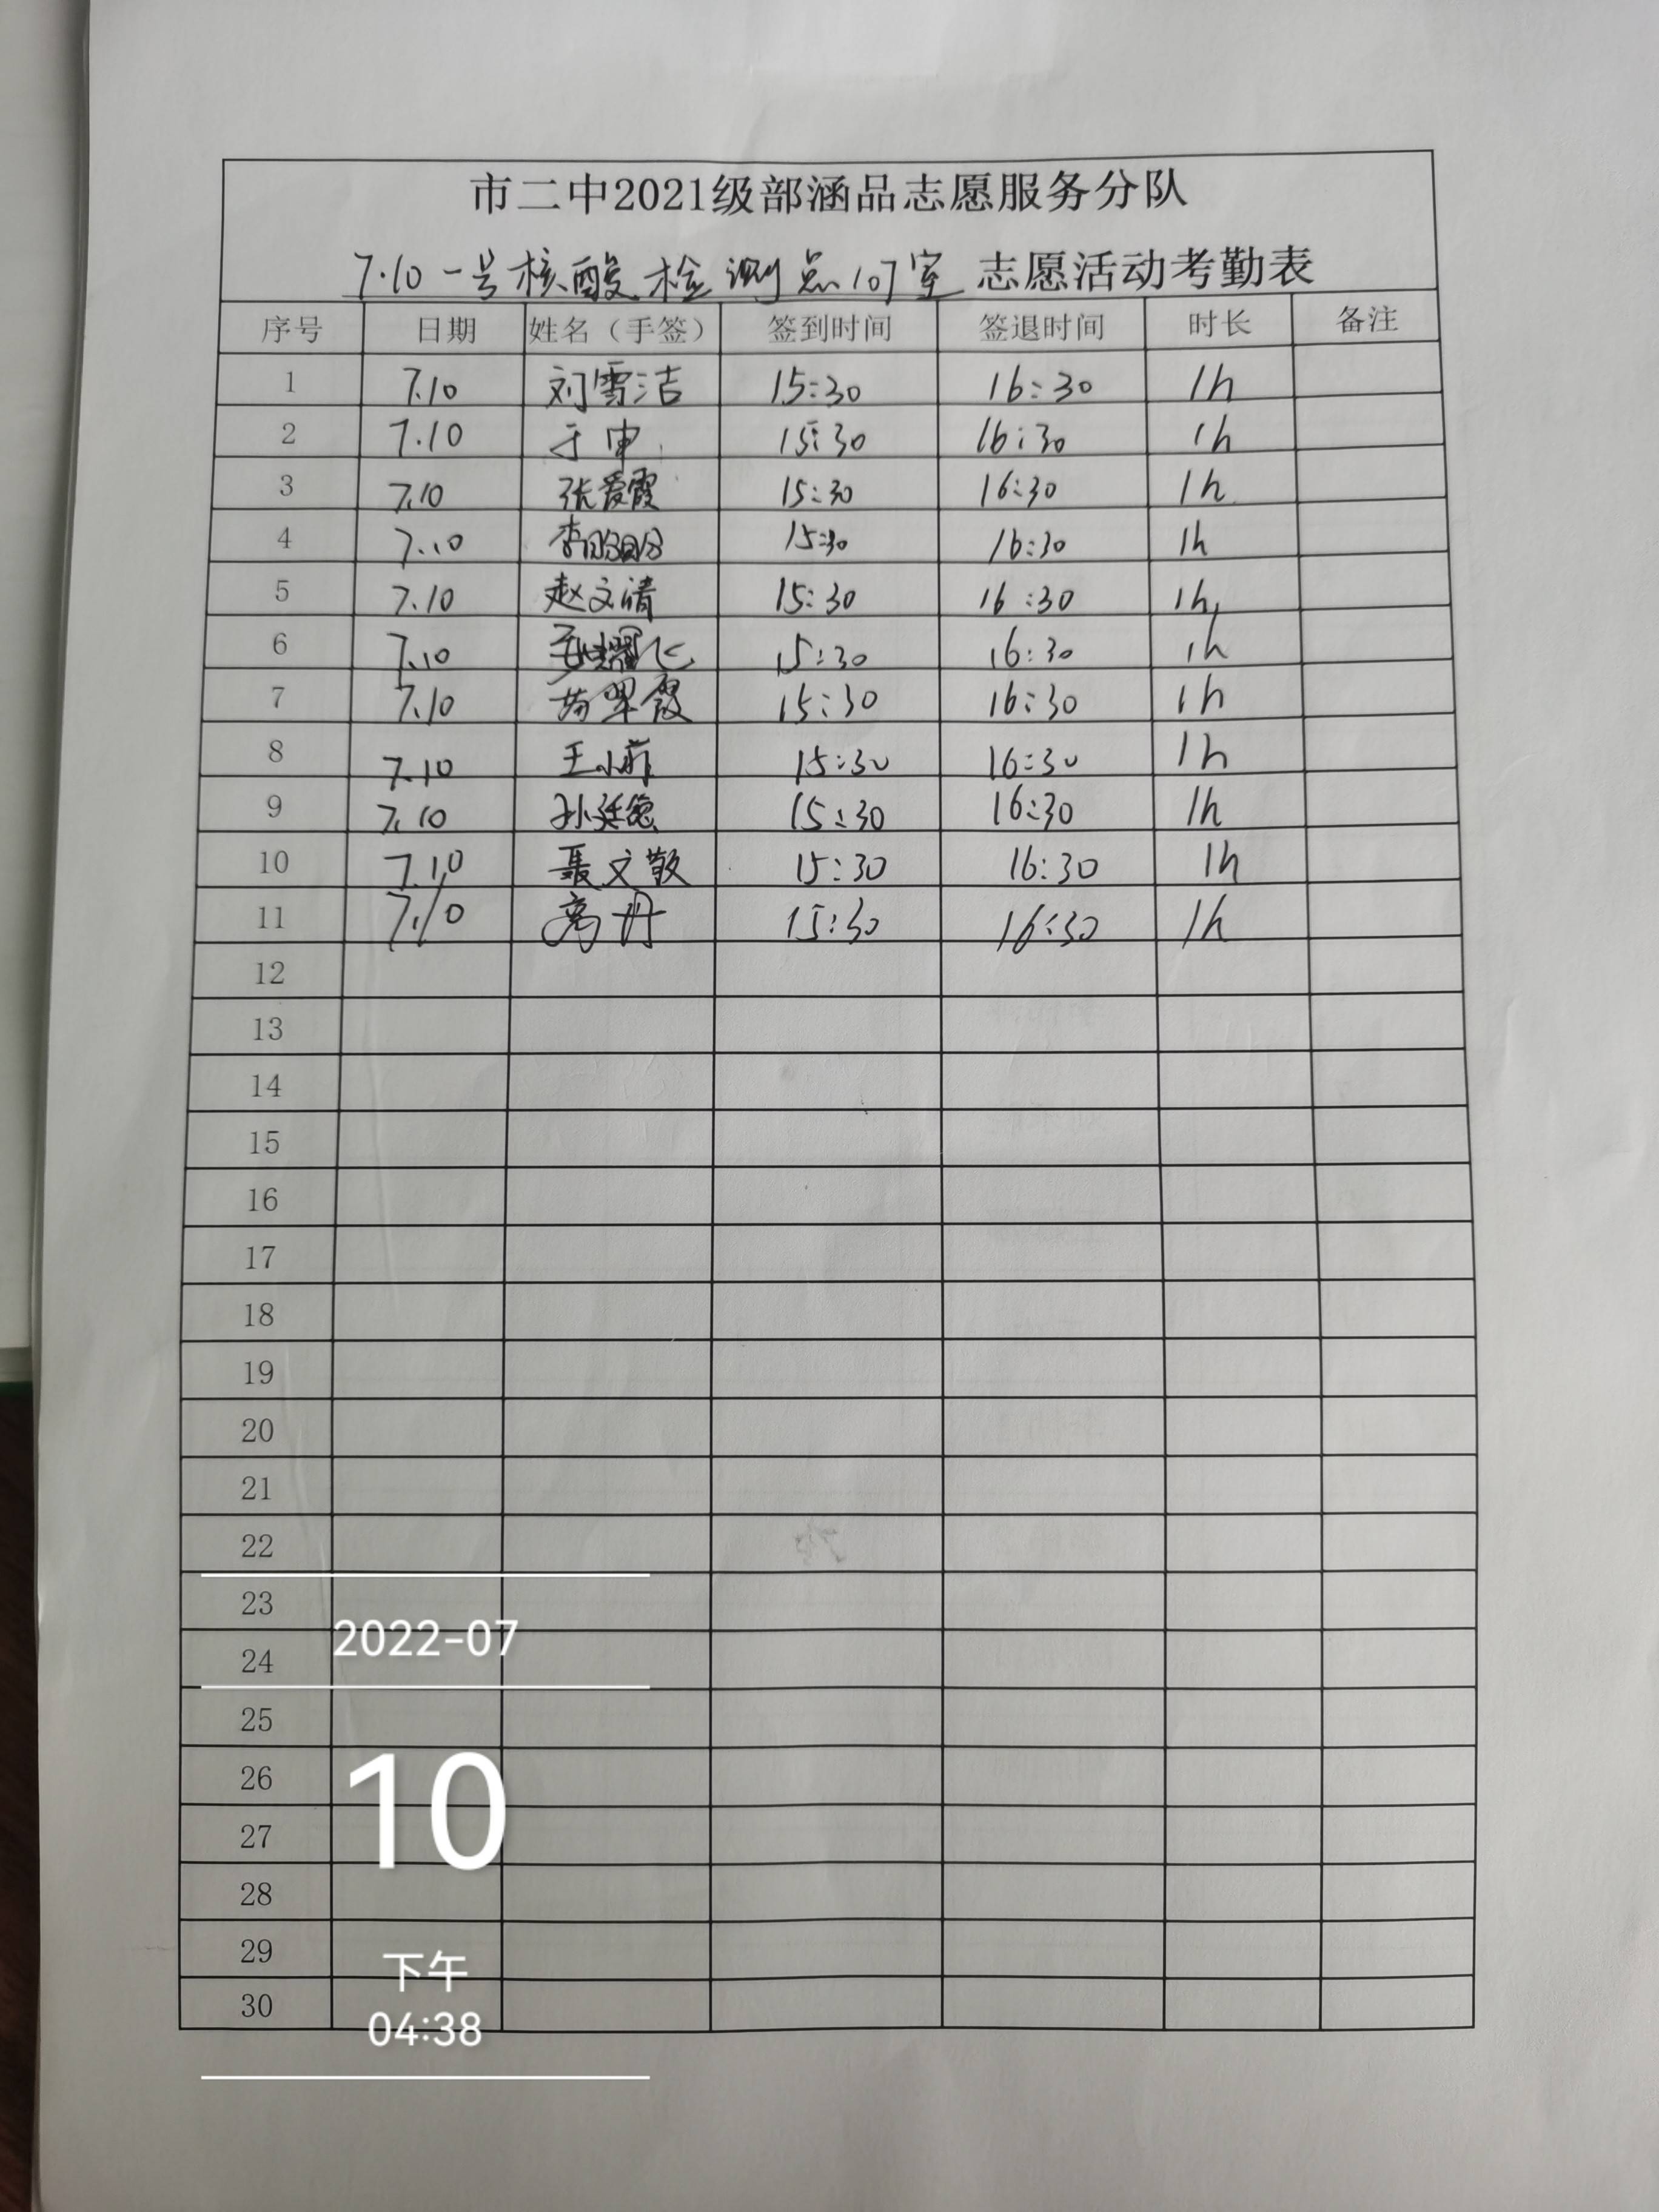 市二中2021级部涵品志愿服务分队
7.10一号核酸检测点107室 志愿活动考勤表
序号 日期 姓名（手签） 签到时间 签退时间 时长 备注
1 7.10 刘雪洁 15:30 16:30 1h
2 7.10 于申 15:30 16:30 1h
3 7.10 张爱霞 15:30 16:30 1h
4 7.10 15:30 16:30 1h
5 7.10 赵文清 15:30 16:30 1h
6 7.10 15:30 16:30 1h
7 7.10 15:30 16:30 1h
8 7.10 15:30 16:30 1h
9 7.10 孙廷德 15:30 16:30 1h
10 7.10 聂文敬 15:30 16:30 1h
11 7.10 15:30 16:30 1h
12
13
14
15
16
17
18
19
20
21
22
23
2022-07
24
25
26
10
27
28
29
下午
30
04:38